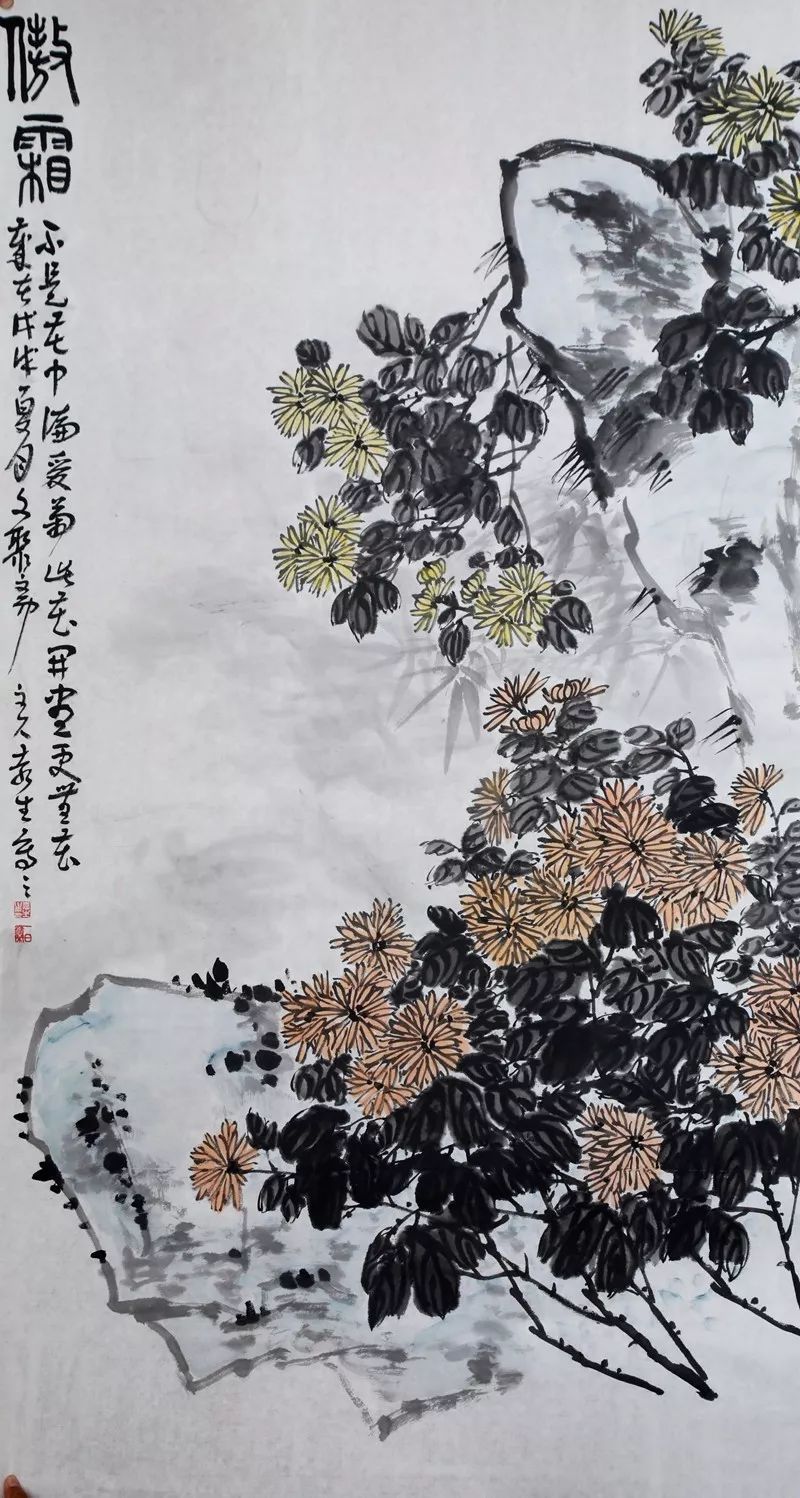 傲霜
不是花中偏爱菊此花开尽更无花
岁在戊戌夏月文聚斋主人袁生写之